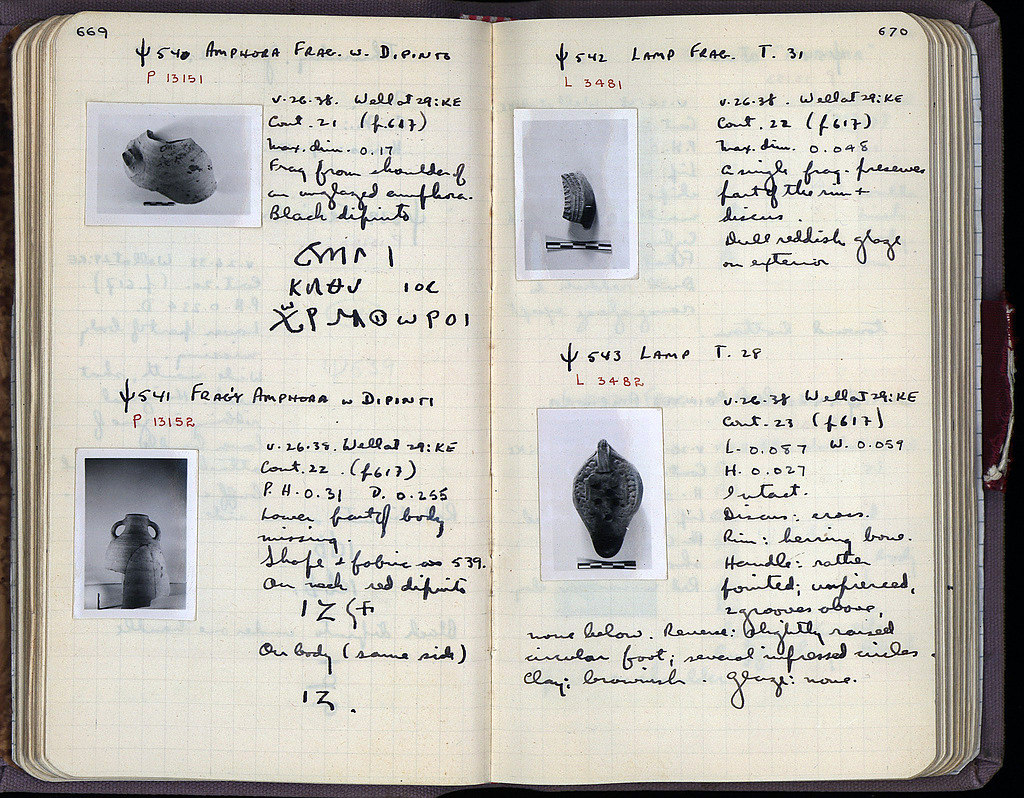 669
ψ 540 AMPHORA FRAG. W. DIPINTO
P 13151
V.26.38. Well at 29:KE
Cont. 21 (f.617)
Max. dim. 0.17
Frag from shoulder of
an unglazed amphora.
Black dipinto
ψ 541 FRAG'Y AMPHORA W DIPINTI
P 13152
V.26.38. Well at 29:KE
Cont. 22. (f617)
P.H. 0.31 D. 0.255
Lower part of body
missing.
Shape & fabric as 539.
On neck red dipinto
On body (same side)
670
ψ 542 LAMP FRAG. T. 31
L 3481
V.26.38. Well at 29:KE
Cont. 22 (f617)
max. dim. 0.048
A single frag. preserves
part of the rim +
discus.
Dull reddish glaze
on exterior
ψ 543 LAMP T. 28
L 3482
V.26.38 Well at 29:KE
Cont. 23 (f617)
L. 0.087 W. 0.059
H. 0.027
Intact.
Discus: cross.
Rim: herring bone.
Handle: rather
pointed; unpierced,
2 grooves above,
none below. Reverse: slightly raised
circular foot; several impressed circles.
Clay: brownish. Glaze: none.